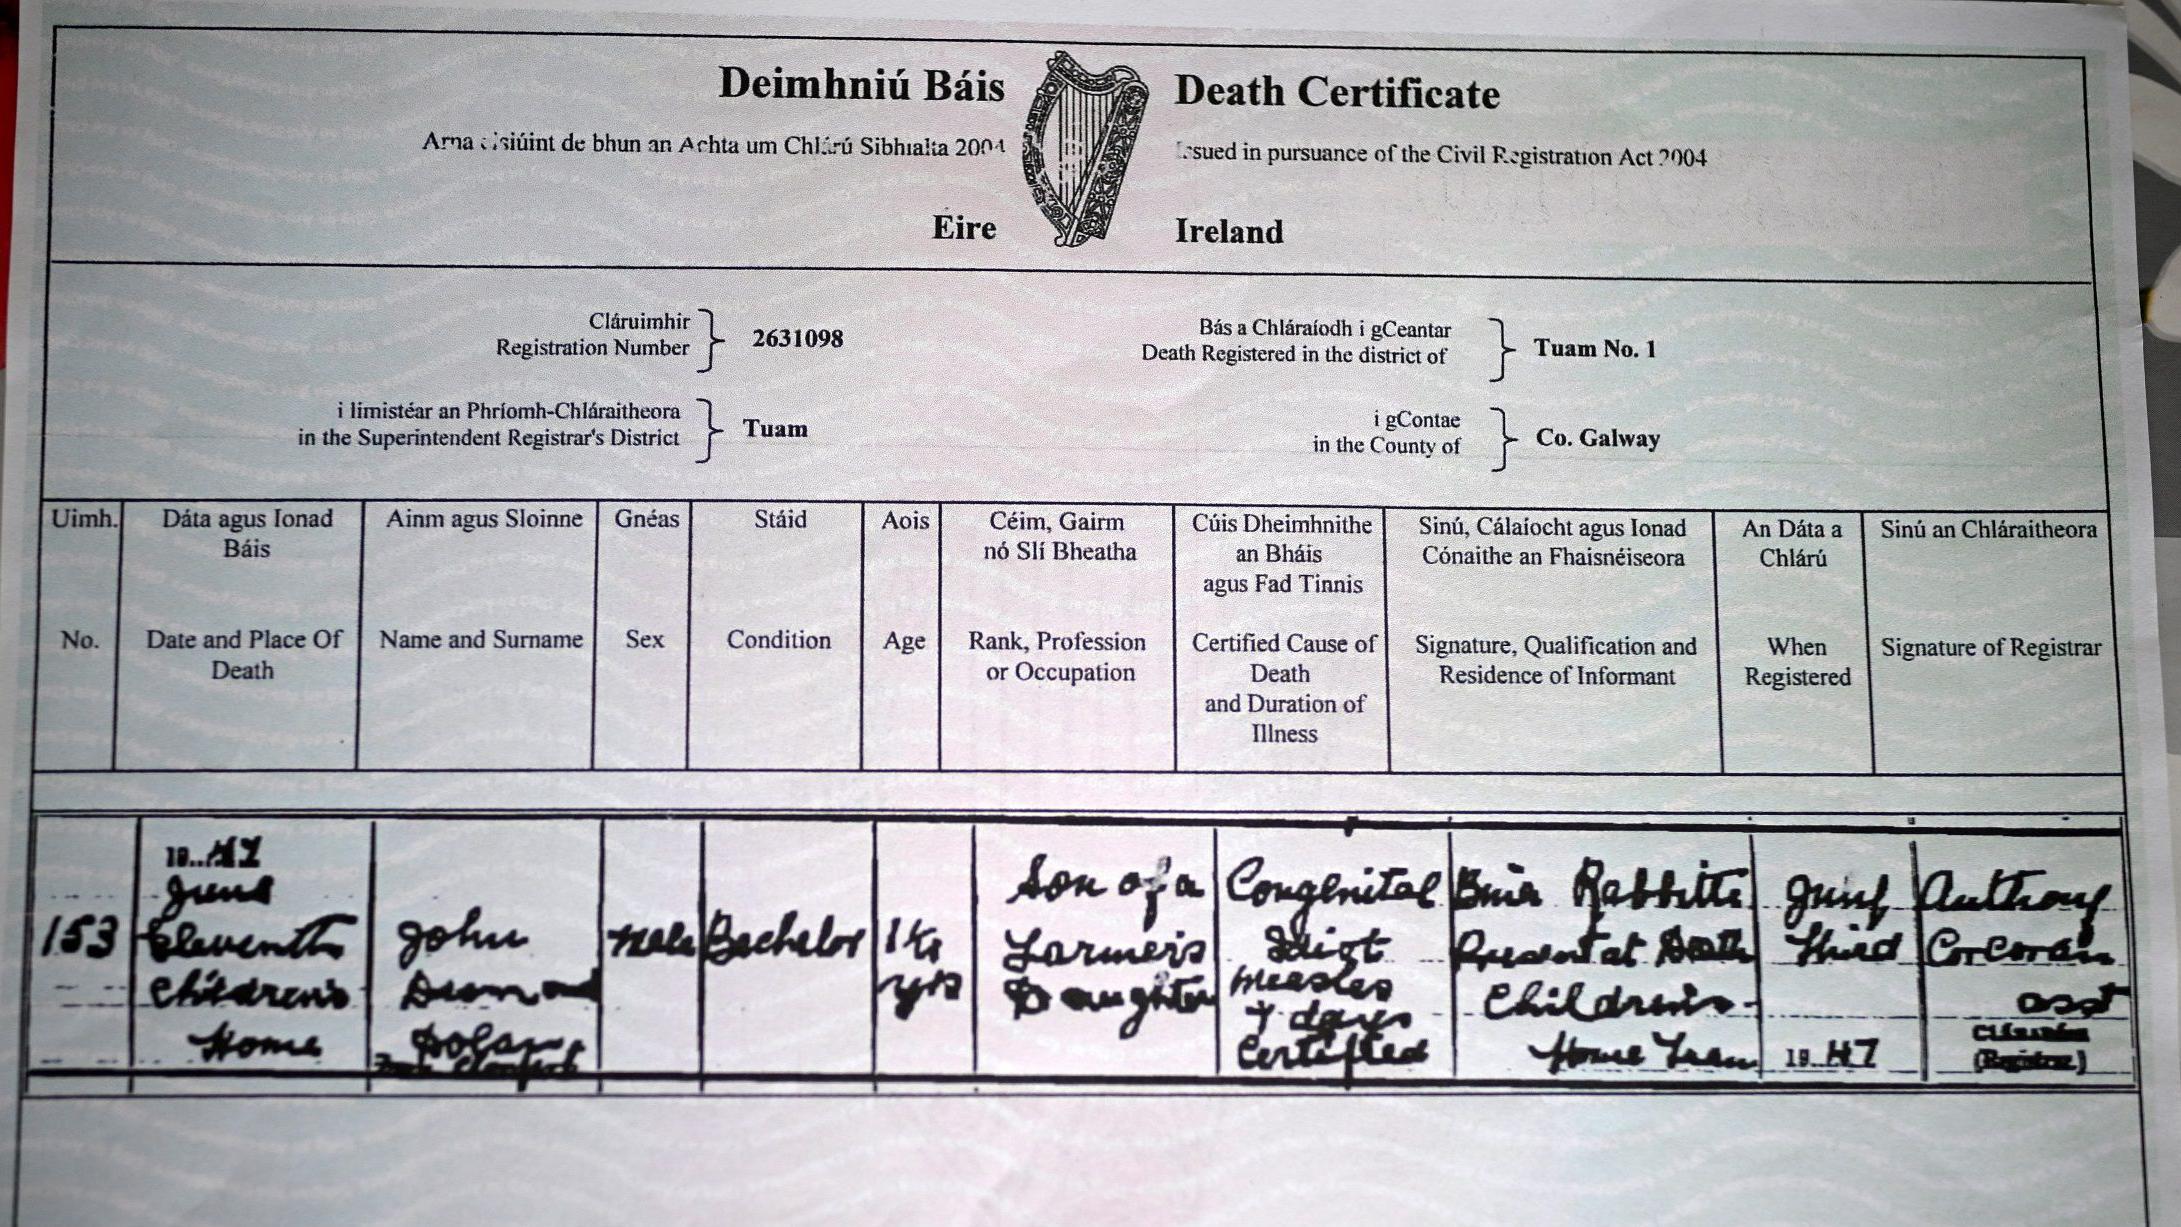 Deimhniú Báis
Death Certificate
de bhun an Achta um Chlárú Sibhialta 2004
in pursuance of the Civil Registration Act 2004
Eire
Ireland
Cláruimhir
Registration Number
2631098
Bás a Chláraíodh i gCeantar
Death Registered in the district of
Tuam No. 1
i limistéar an Phríomh-Chláraitheora
in the Superintendent Registrar's District
Tuam
i gContae
in the County of
Co. Galway
Uimh.
No.
Dáta agus Ionad
Báis
Date and Place Of
Death
Ainm agus Sloinne
Name and Surname
Gnéas
Sex
Stáid
Condition
Aois
Age
Céim, Gairm
nó Slí Bheatha
Rank, Profession
or Occupation
Cúis Dheimhnithe
an Bháis
agus Fad Tinnis
Certified Cause of
Death
and Duration of
Illness
Sinú, Cálaíocht agus Ionad
Cónaithe an Fhaisnéiseora
Signature, Qualification and
Residence of Informant
An Dáta a
Chlárú
When
Registered
Sinú an Chláraitheora
Signature of Registrar
153
19..47
June
Eleventh
Children's
Home
John
Desmond
Dolan
Male
Bachelor
yrs
Son of a
Farmer's
Daughter
Congenital
Idiot
Measles
days
Certified
Rabbitte
Present at Death
Children's
Home Tuam
Third
19..47
Anthony
Corcoran
asst
(Registrar)